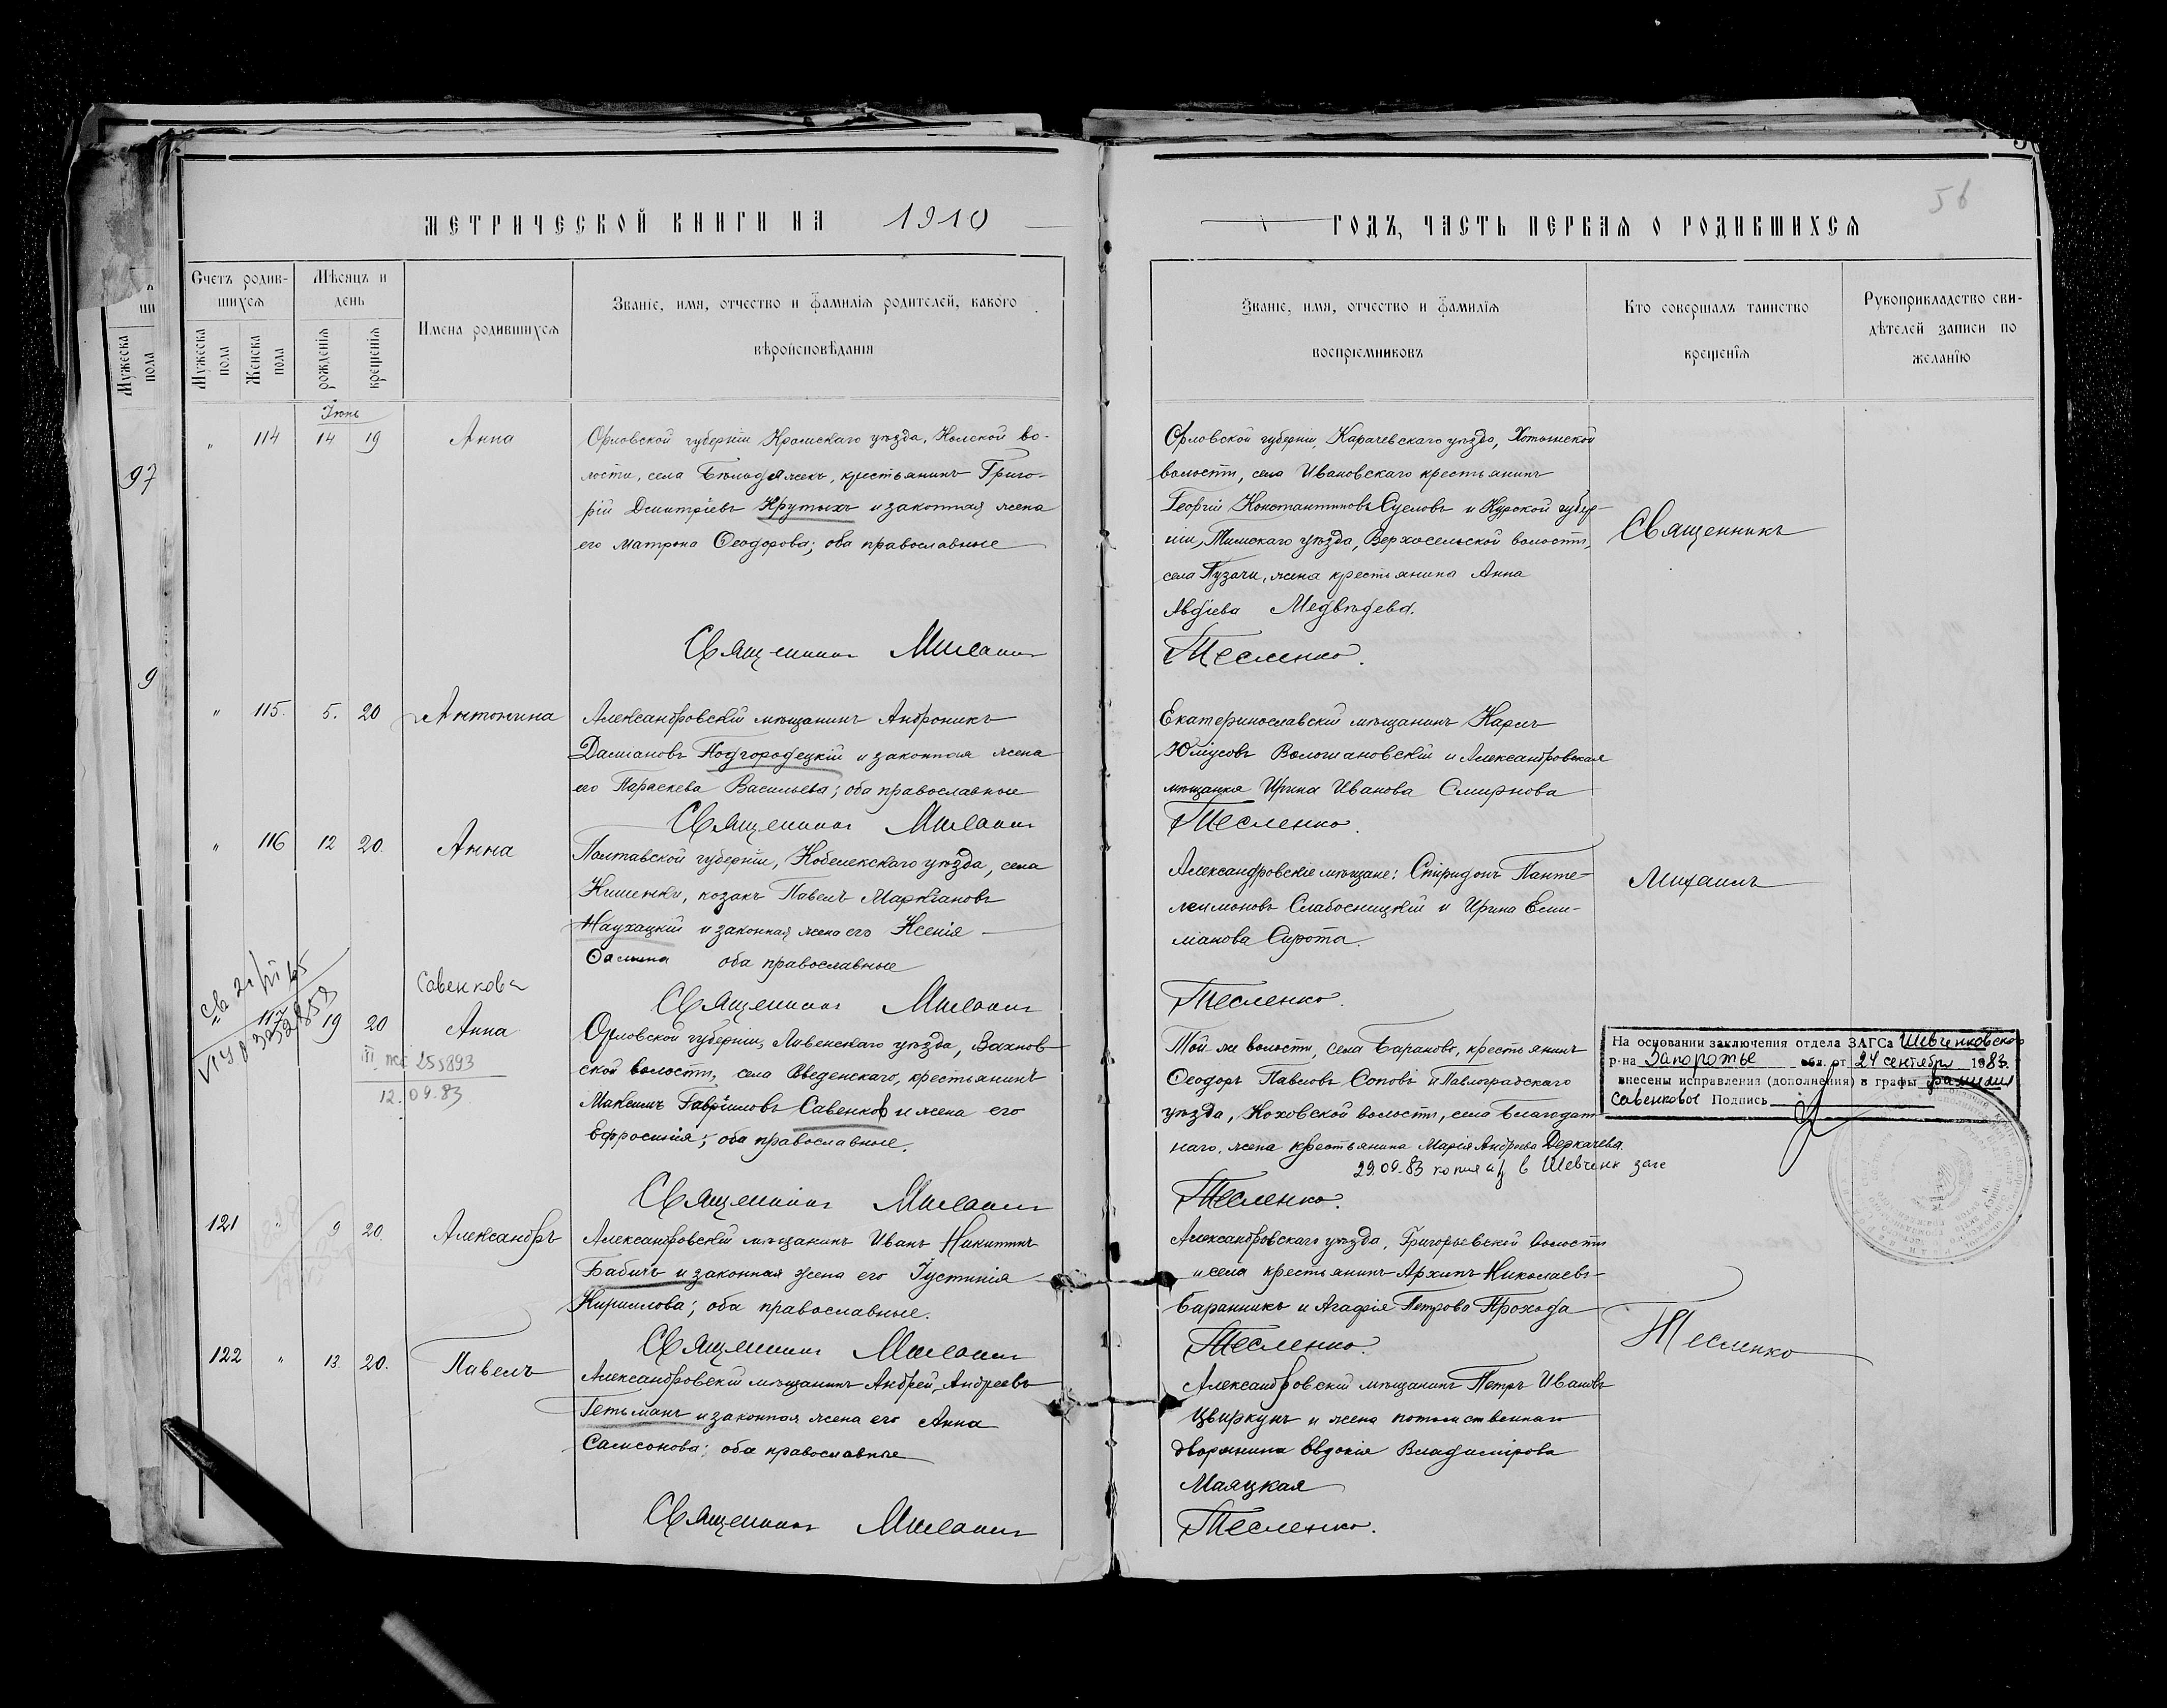 МЕТРИЧЕСКОЙ КНИГИ НА 1910
ГОДЪ, ЧАСТЬ ПЕРВАЯ О РОДИВШИХСЯ
56
Счетъ родив-
шихся
Мѣсяцъ и
день
Имена родившихся
Званіе, имя, отчество и фамилія родителей, какого
вѣроисповѣданія
Мужеска
пола
Мужеска
пола
Женска
пола
рожденія
крещенія
Званіе, имя, отчество и фамилія
воспріемниковъ
Кто совершалъ таинство
крещенія
Рукоприкладство сви-
дѣтелей записи по
желанію
97
9
Іюнь
" 114 14 19 Анна
Орловской губерніи Кромскаго уѣзда,
лости, села крестьянинъ Григо-
рій Дмитріевъ Крутыхъ и законная жена
его Матрона Ѳеодорова; оба православные
Священникъ Михаилъ
Орловской губерніи, Карачевскаго уѣзда,
волости, села Ивановскаго крестьянинъ
Георгій Константиновъ и Курской губер-
ніи, Тимскаго уѣзда, Верхосельской волости,
села Пузачи, жена крестьянина Анна
Авдіева Медвѣдева.
Тесленко.
Священникъ
" 115. 5. 20 Антонина
Александровскій мѣщанинъ Андроникъ
Даміановъ Подгородецкій и законная жена
его Параскева Васильева; оба православные
Священникъ Михаилъ
Екатеринославскій мѣщанинъ Карлъ
Юліусовъ Воломановскій и Александровская
мѣщанка Ирина Иванова Смирнова
Тесленко.
" 116 12 20. Анна
Полтавской губерніи, Кобелекскаго уѣзда, села
Кишенки, козакъ Павелъ Маркіановъ
Наухацкій и законная жена его Ксенія
оба православные
Священникъ Михаилъ
Александровскіе мѣщане: Спиридонъ Панте-
леимоновъ Слабосницкій и Ирина Еми-
ліанова Сирота.
Тесленко.
Михаилъ
Савенкова
" 117 19 20 Анна
255893
12.09.83
Орловской губерніи, Ливенскаго уѣзда, Вахнов-
ской волости, села Введенскаго, крестьянинъ
Максимъ Гавріиловъ Савенков и жена его
Ефросинія; оба православные.
Священникъ Михаилъ
Той же волости, села Бараново, крестьянинъ
Ѳеодоръ Павловъ Соповъ и Павлоградскаго
уѣзда, Коховской волости, села Благодат-
наго, жена крестьянина Марія Андреева Деркачева.
29.09.83 копия в Шевченк загс
Тесленко.
На основании заключения отдела ЗАГСа Шевченковского
р-на Запорожье обл. от 24 сентября 1983.
внесены исправления (дополнения) в графы фамилия
Савенковов Подпись
121 " 9 20. Александръ
Александровскій мѣщанинъ Иванъ Никитинъ
Бабичъ и законная жена его Іустинія
Кириллова; оба православные.
Священникъ Михаилъ
Александровскаго уѣзда, Григорьевской волости
и села крестьянинъ Архипъ Николаевъ
Баранникъ и Агафія Петрова Прохода
Тесленко.
Тесленко
122 " 13. 20. Павелъ
Александровскій мѣщанинъ Андрей Андреевъ
Гетьманъ и законная жена его Анна
Самсонова; оба православные
Священникъ Михаилъ
Александровскій мѣщанинъ Петръ Ивановъ
Цвиркунъ и жена потомственнаго
дворянина Евдокія Владимірова
Маяцкая
Тесленко.